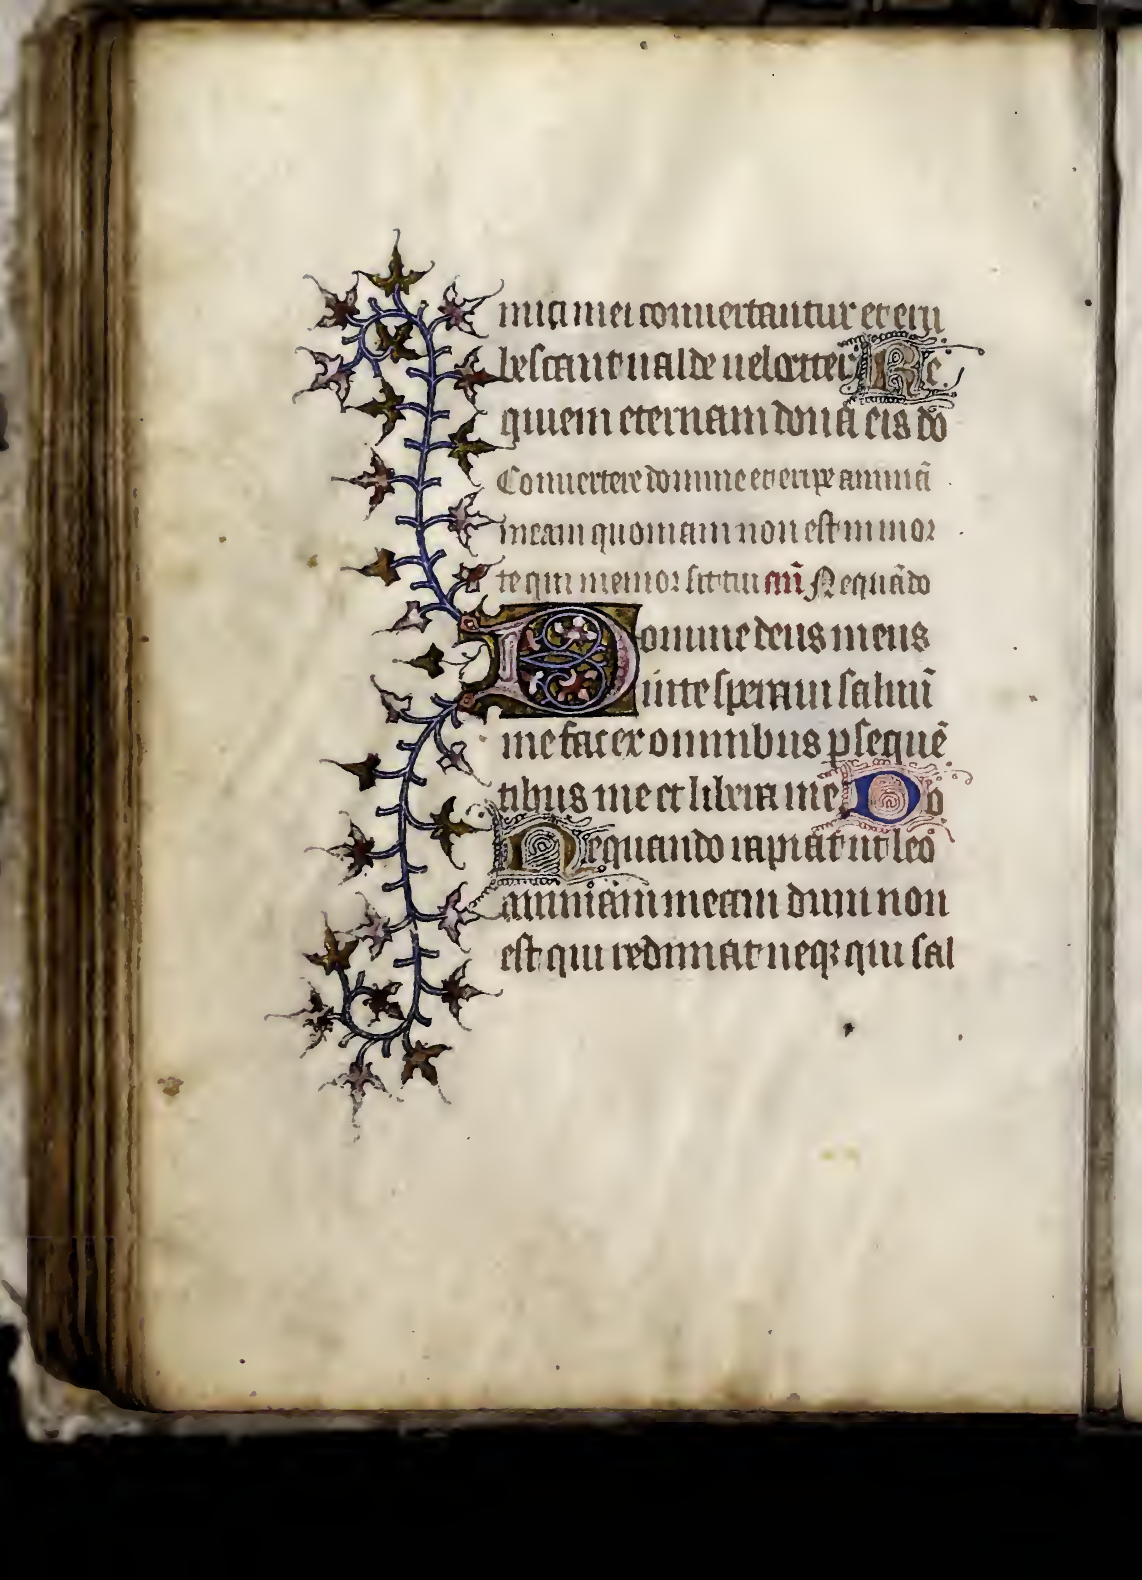 mici mei conuertantur et eru
bescant ualde uelociter Re
quiem eternam dona eis do
Conuertere domine et eripe animā
meam quoniam non est in mor
te qui memor sit tui añ Nequādo
Domine deus meus
in te speraui saluū
me fac ex omnibus psequē
tibus me et libera me No
Nequando rapiat ut leo
animam meam dum non
est qui redimat neqz qui sal